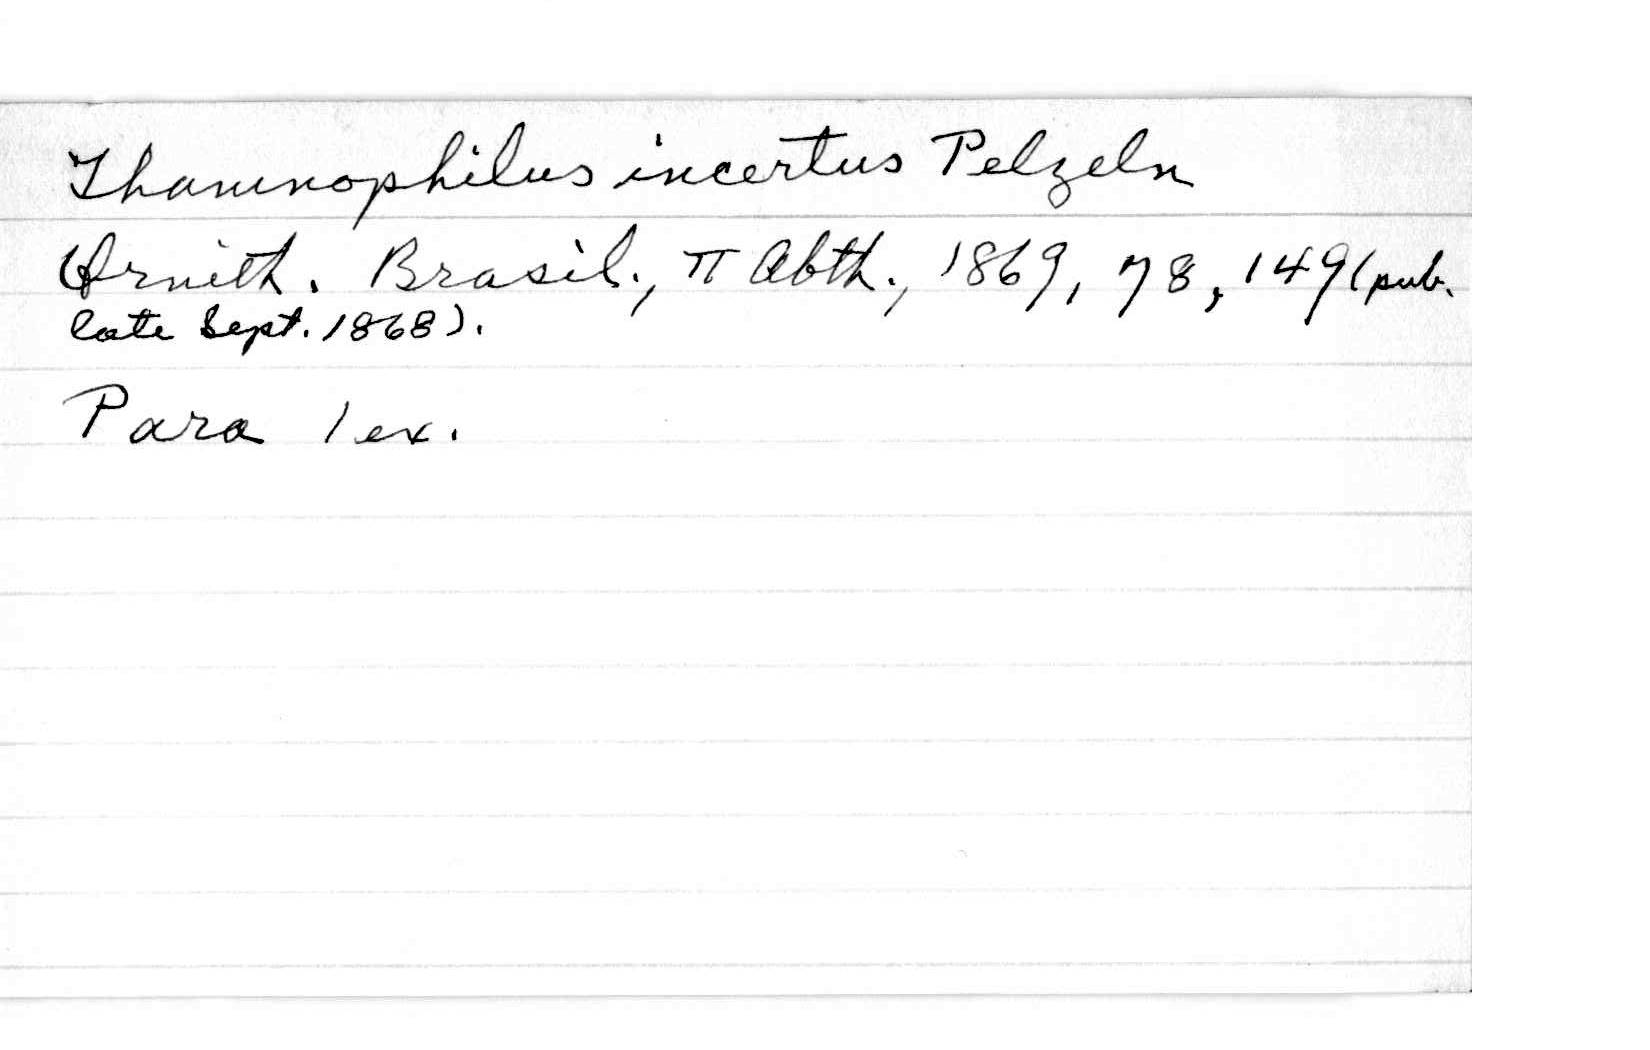 Thamnophilus incertus Pelzeln
Ornith. Brasil., II Abth., 1869, 78, 149 (pub.
late Sept. 1868).
Para 1 ex.